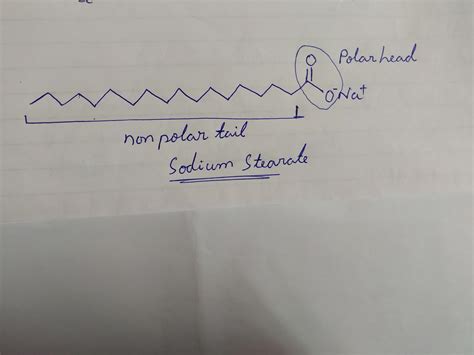 Polar head
O
O⁻Na⁺
non polar tail
Sodium Stearate